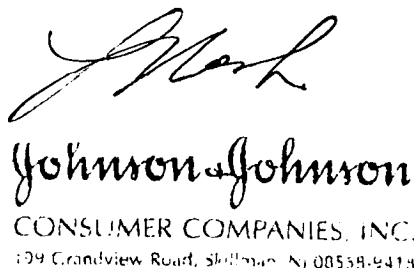 Johnson & Johnson
CONSUMER COMPANIES, INC.
199 Grandview Road, Skillman, NJ 08558-9418